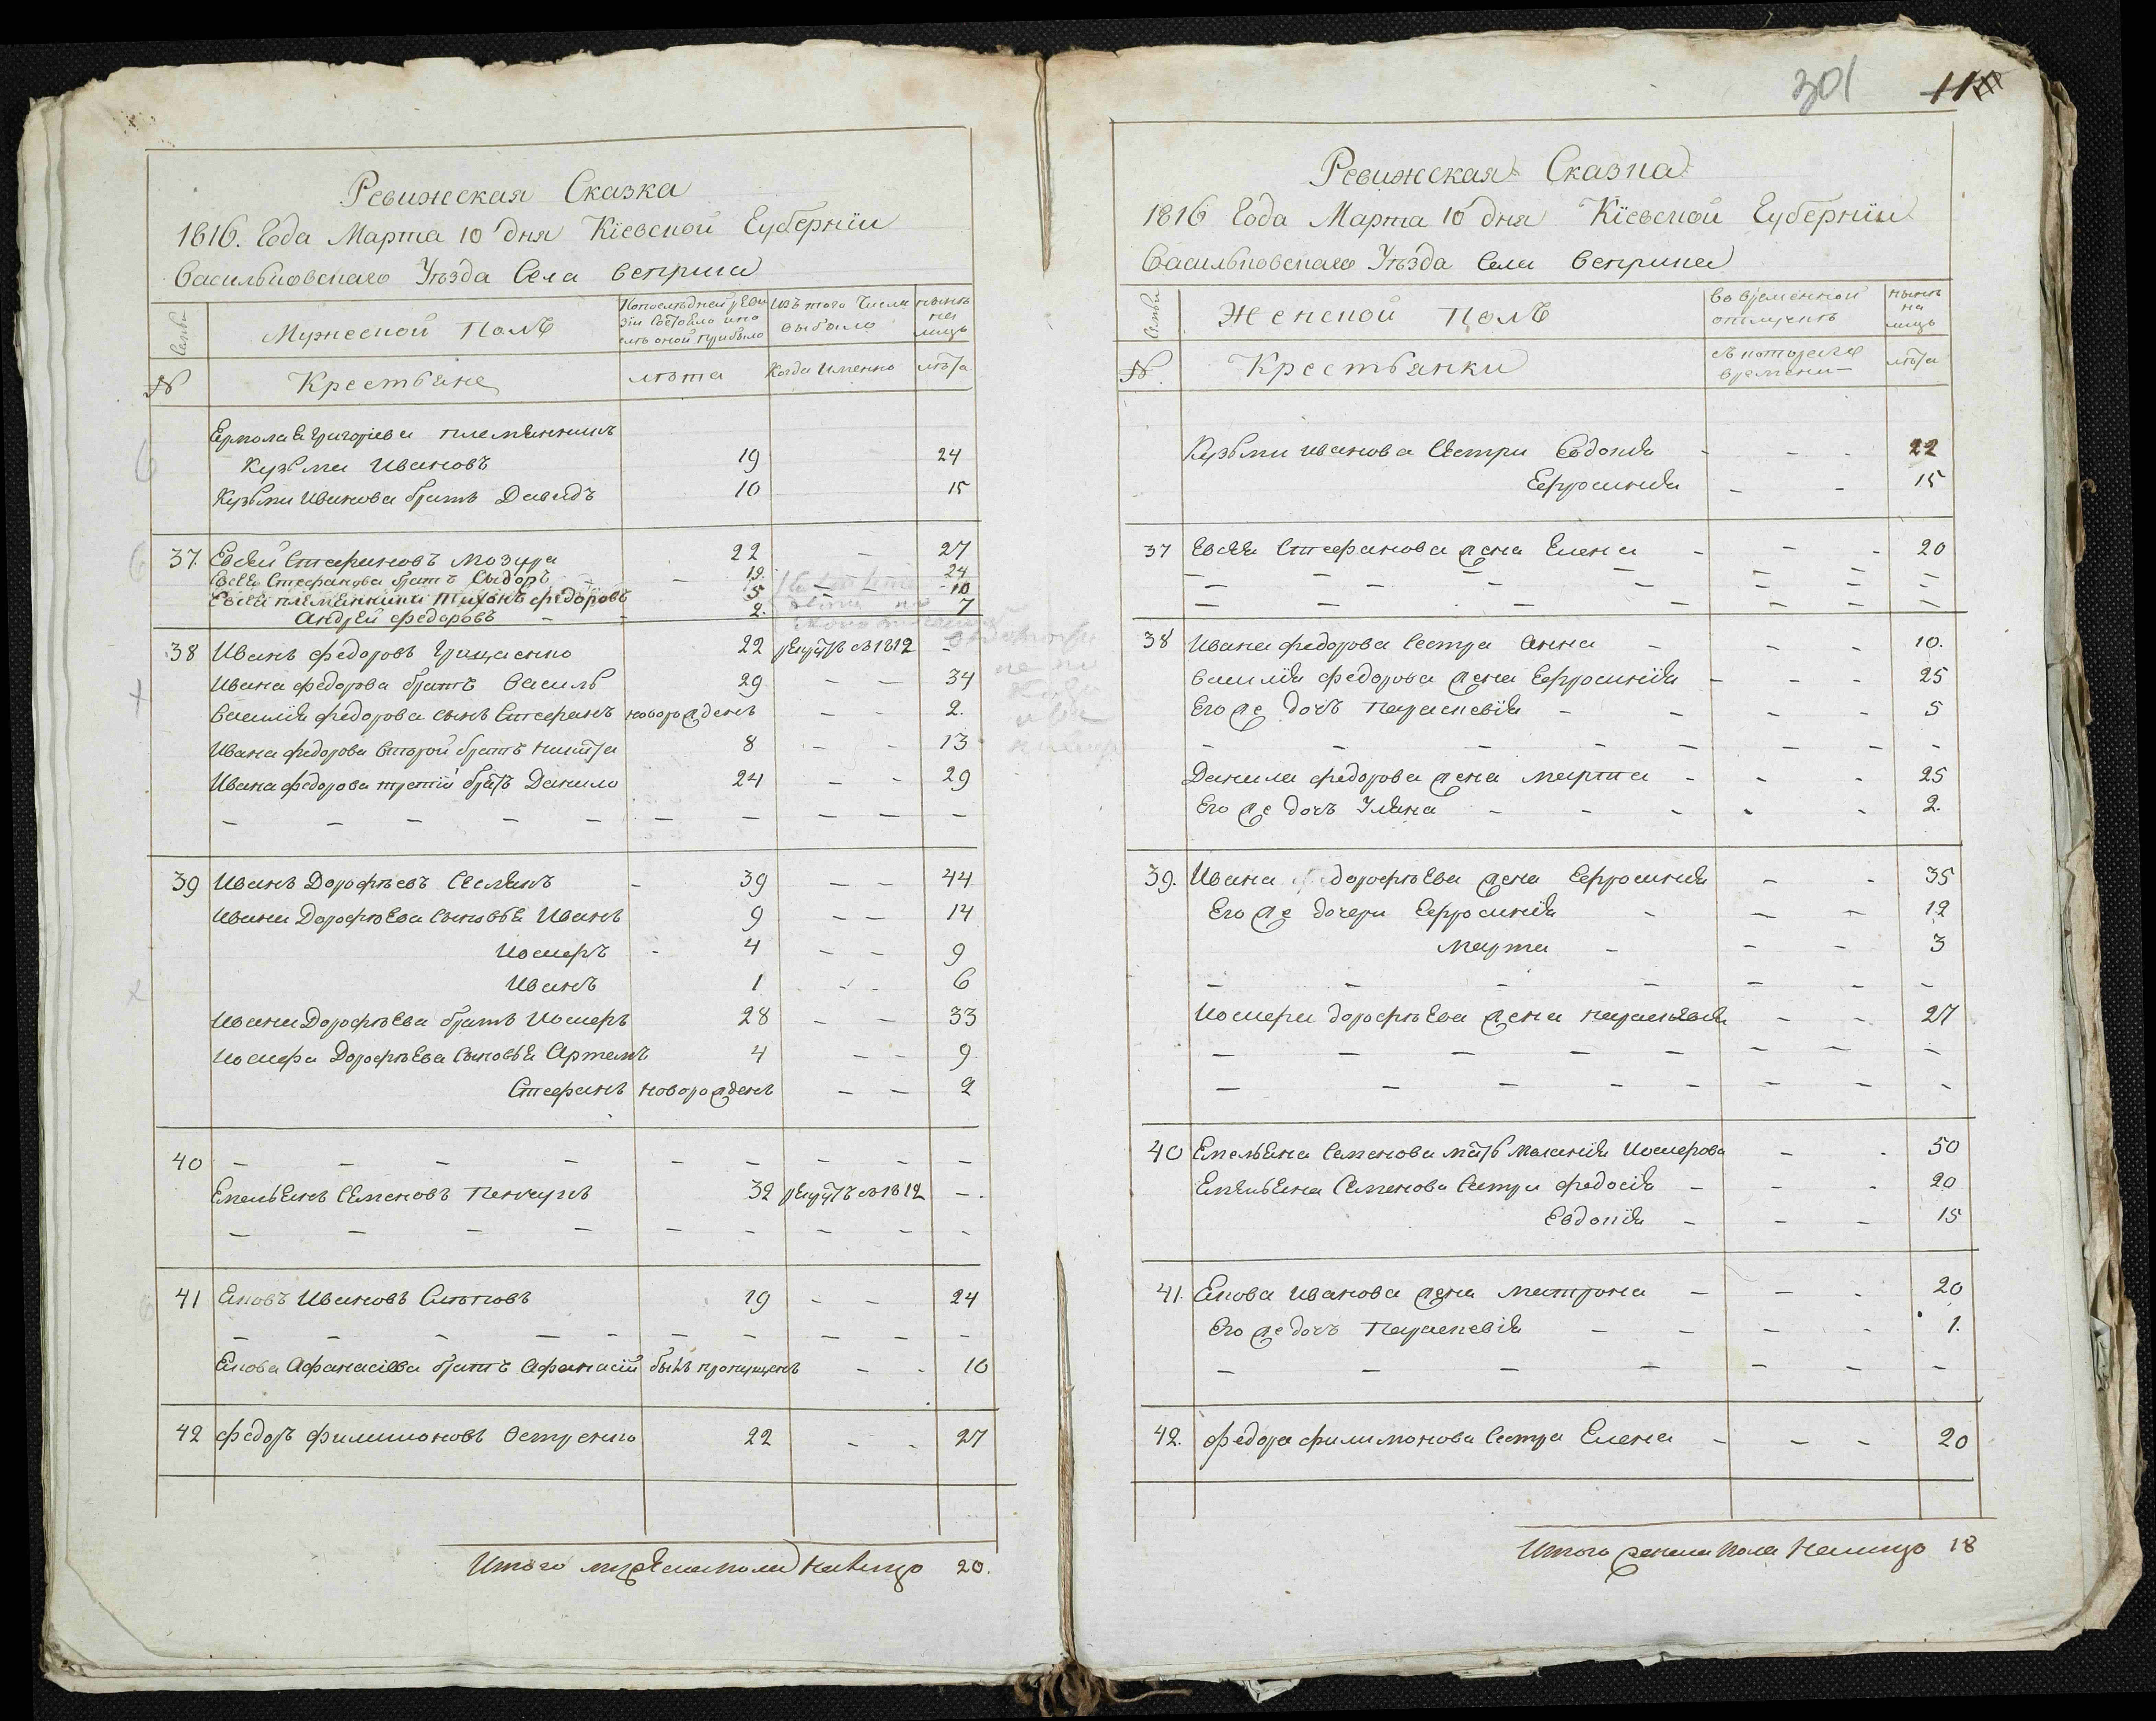 Ревижская Сказка
1816. Года Марта 10 дня Кіевской Губерніи
Васильковскаго Уѣзда Села Веприка
Семьи
Мужеской Полъ
Изъ того Числа выбыло
нынѣ на лицо
№
Крестьяне
лѣта
Когда Именно
лѣта
Ермолая Григоріева племянникъ
Кузьма Ивановъ 19 24
Кузьми Иванова братъ Давидъ 10 15
37. Евсей Стефановъ Мозура 22 — 27
Евсея Стефанова братъ Сыдоръ — 19. 24
Евсея племянники Тихонъ Федоровъ 5 10
Андрей Федоровъ — — 2. 7
38 Иванъ Федоровъ Грищенко 22 рекрутъ въ 1812 —
Ивана Федорова братъ Василь 29 — — 34
Василія Федорова сынъ Стефанъ новорожденъ — — 2.
Ивана Федорова Второй братъ Никита 8 — — 13
Ивана Федорова третій братъ Данило 24 — — 29
— — — — — — — — — —
39 Иванъ Дорофѣевъ — 39 — — 44
Ивана Дорофѣева сыновья Иванъ 9 — — 14
Иосифъ — 4 — — 9
Иванъ 1 — — 6
Ивана Дорофѣева братъ Иосифъ 28 — — 33
Иосифа Дорофѣева сыновья Артемъ 4 — — 9.
Стефанъ новорожденъ — — 2
40 — — — — — — — — —
Емельянъ Семеновъ 32 рекрутъ въ 1812 — .
— — — — — — — — —
41 Яковъ Ивановъ 19 — — 24
— — — — — — — — — —
Якова Афанасіева братъ Афанасій былъ пропущенъ — — 10
42 Федоръ Филимоновъ 22 — — 27
Итого мужеска пола налицо 20.
301
110
Ревижская Сказка
1816 Года Марта 10 дня Кіевской Губерніи
Васильковскаго Уѣзда Села Веприка
Семьи
Женской Полъ
Во временной отлучкѣ
нынѣ на лицо
№.
Крестьянки
съ котораго времени
лѣта
Кузьми Иванова Сестри Евдокія — — — 22
Ефросинія — — 15
37 Евсея Стефанова жена Елена — — — 20
— — — — — — — —
— — — — — — — —
— — — — — — — —
38 Ивана Федорова Сестра Анна — — — 10.
Василія Федорова жена Ефросинія — — — 25
Его же дочь Параскевія — — — — 5
— — — — — — — —
Данила Федорова жена Марта — — — 25
Его же дочь Уляна — — — — — 2.
39. Ивана Дорофѣева жена Ефросинія — — 35
Его же дочери Ефросинія — — — 12
Марта — — — 3
— — — — — — —
Иосифа Дорофѣева жена Параскевія — — 27
— — — — — — — —
— — — — — — — —
40 Емельяна Семенова мать Маланія Иосифова — — 50
Емельяна Семенова Сестри Федосія — — — 20
Евдокія — — — 15
41. Якова Иванова жена Матрона — — — 20
Его же дочь Параскевія — — — — 1.
— — — — — — —
42. Федора Филимонова Сестра Елена — — — 20
Итого женска пола налицо 18